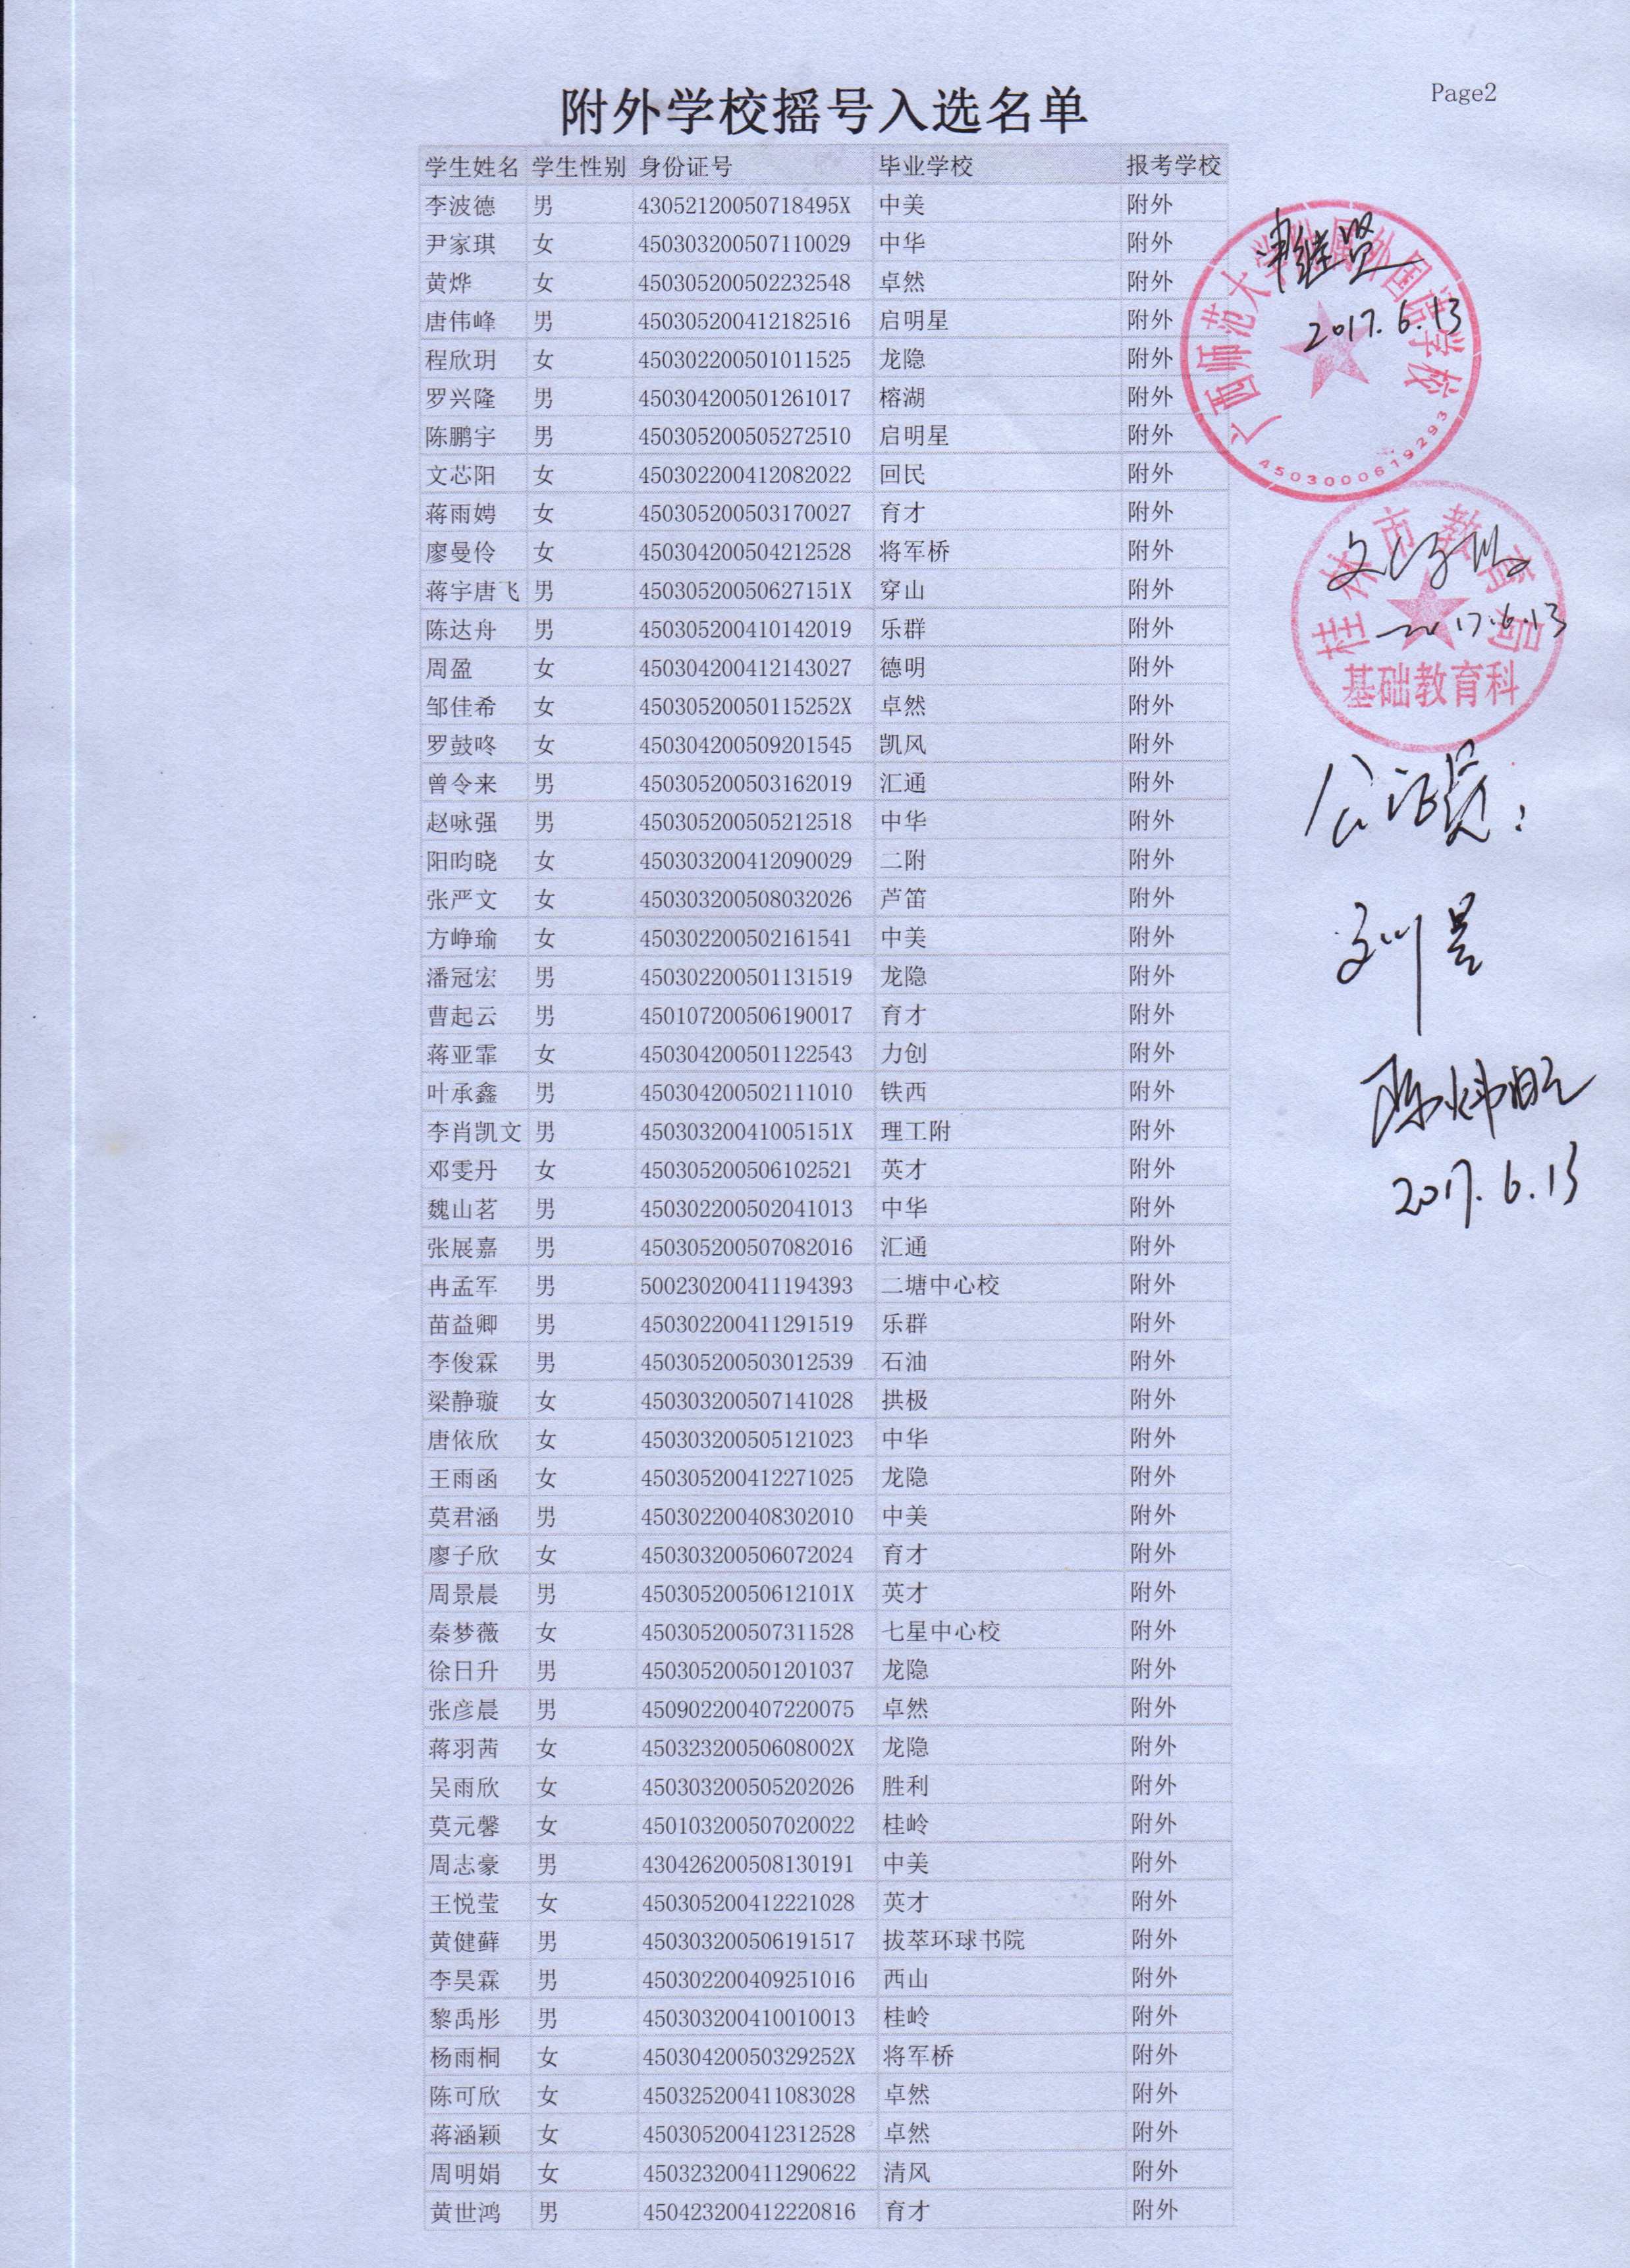 Page2
附外学校摇号入选名单
学生姓名 学生性别 身份证号 毕业学校 报考学校
李波德 男 43052120050718495X 中美 附外
尹家琪 女 450303200507110029 中华 附外
黄烨 女 450305200502232548 卓然 附外
唐伟峰 男 450305200412182516 启明星 附外
程欣玥 女 450302200501011525 龙隐 附外
罗兴隆 男 450304200501261017 榕湖 附外
陈鹏宇 男 450305200505272510 启明星 附外
文芯阳 女 450302200412082022 回民 附外
蒋雨娉 女 450305200503170027 育才 附外
廖曼伶 女 450304200504212528 将军桥 附外
蒋宇唐飞 男 45030520050627151X 穿山 附外
陈达舟 男 450305200410142019 乐群 附外
周盈 女 450304200412143027 德明 附外
邹佳希 女 45030520050115252X 卓然 附外
罗鼓咚 女 450304200509201545 凯风 附外
曾令来 男 450305200503162019 汇通 附外
赵咏强 男 450305200505212518 中华 附外
阳昀晓 女 450303200412090029 二附 附外
张严文 女 450303200508032026 芦笛 附外
方峥瑜 女 450302200502161541 中美 附外
潘冠宏 男 450302200501131519 龙隐 附外
曹起云 男 450107200506190017 育才 附外
蒋亚霏 女 450304200501122543 力创 附外
叶承鑫 男 450304200502111010 铁西 附外
李肖凯文 男 45030320041005151X 理工附 附外
邓雯丹 女 450305200506102521 英才 附外
魏山茗 男 450302200502041013 中华 附外
张展嘉 男 450305200507082016 汇通 附外
冉孟军 男 500230200411194393 二塘中心校 附外
苗益卿 男 450302200411291519 乐群 附外
李俊霖 男 450305200503012539 石油 附外
梁静璇 女 450303200507141028 拱极 附外
唐依欣 女 450303200505121023 中华 附外
王雨函 女 450305200412271025 龙隐 附外
莫君涵 男 450302200408302010 中美 附外
廖子欣 女 450303200506072024 育才 附外
周景晨 男 45030520050612101X 英才 附外
秦梦薇 女 450305200507311528 七星中心校 附外
徐日升 男 450305200501201037 龙隐 附外
张彦晨 男 450902200407220075 卓然 附外
蒋羽茜 女 45032320050608002X 龙隐 附外
吴雨欣 女 450303200505202026 胜利 附外
莫元馨 女 450103200507020022 桂岭 附外
周志豪 男 430426200508130191 中美 附外
王悦莹 女 450305200412221028 英才 附外
黄健藓 男 450303200506191517 拔萃环球书院 附外
李昊霖 男 450302200409251016 西山 附外
黎禹彤 男 450303200410010013 桂岭 附外
杨雨桐 女 45030420050329252X 将军桥 附外
陈可欣 女 450325200411083028 卓然 附外
蒋涵颖 女 450305200412312528 卓然 附外
周明娟 女 450323200411290622 清风 附外
黄世鸿 男 450423200412220816 育才 附外
广西师范大学附属外国语学校
2017.6.13
4503000619293
桂林市教育局
2017.6.13
基础教育科
公证员:
刘昱
2017.6.13